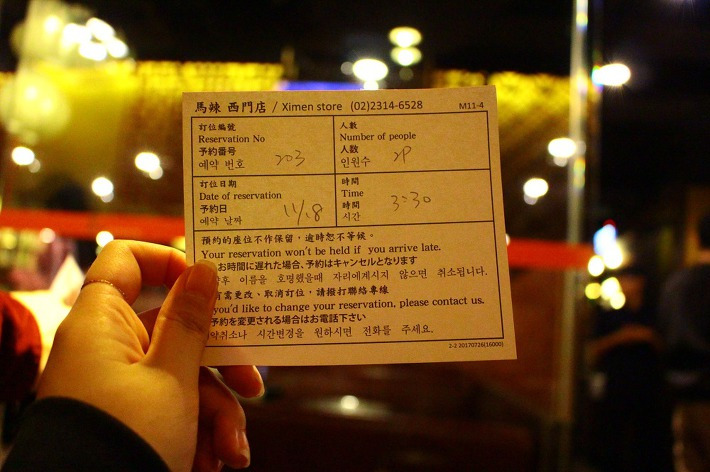 馬辣 西門店 / Ximen store (02)2314-6528 M11-4
訂位編號
Reservation No
予約番号
예약 번호 203
人數
Number of people
人数
인원수 2P
訂位日期
Date of reservation
予約日
예약 날짜 11/18
時間
Time
時間
시간 3:30
預約的座位不作保留，逾時恕不等候。
Your reservation won't be held if you arrive late.
お時間に遅れた場合、予約はキャンセルとなります
후 이름을 호명했을때 자리에계시지 않으면 취소됩니다.
有需更改、取消訂位，請撥打聯絡專線
you'd like to change your reservation, please contact us.
予約を変更される場合はお電話下さい
약취소나 시간변경을 원하시면 전화를 주세요.
2-2 20170726(16000)